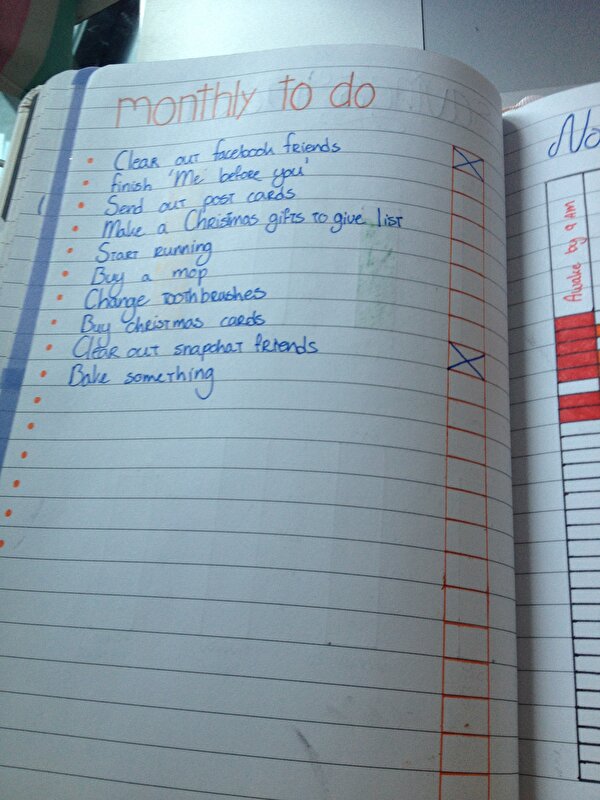 monthly to do
Clear out facebook friends
finish 'Me before you'
Send out post cards
Make a Christmas gifts to give list
Start running
Buy a mop
Change toothbeashes
Buy christmas cards
Clear out snapchat friends
Bake something
No
Awake by 9 AM